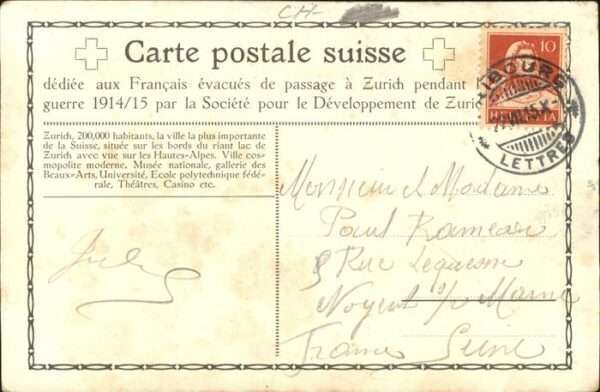 CH-
Carte postale suisse
dédiée aux Français évacués de passage à Zurich pendant
guerre 1914/15 par la Société pour le Développement de Zuric
Zurich, 200,000 habitants, la ville la plus importante
de la Suisse, située sur les bords du riant lac de
Zurich avec vue sur les Hautes-Alpes. Ville cos-
mopolite moderne, Musée nationale, gallerie des
Beaux-Arts, Université, Ecole polytechnique fédé-
rale, Théâtres, Casino etc.
10
LETTRES
Monsieur et Madame
Paul Rameau
Rue Lequesne
Nogent s/ Marne
France Seine
Jules